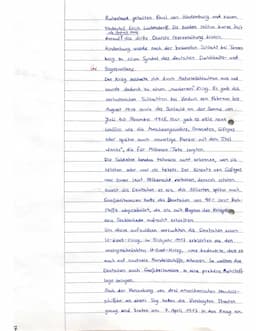 Ruhestand geholten Paul von Hindenburg und seinem
Stabschef Erich Ludendorff. Die beiden sollten kurze Zeit
darauf die dritte Oberste Heeresleitung bilden.
Hindenburg wurde nach der bekannten Schlacht bei Tannen-
berg zu einem Symbol des deutschen Durchhalte- und
Siegeswillens.
Der Krieg zeichnete sich durch Materialschlachten aus und
wurde dadurch zu einem "modernen" Krieg. Es gab die
verlustreichen Schlachten bei Verdun von Februar bis
August 1916 sowie die Schlacht an der Somme von
Juli bis November 1916. Hier gab es viele neue
Waffen wie die Maschinengewehre, Granaten, Giftgas
oder später auch neuartige Panzer mit dem Titel
"tanks", die für Millionen Tote sorgten.
Die Soldaten konnten teilweise nicht erkennen, wen sie
töteten oder wer sie tötete. Der Einsatz von Giftgas
war zwar laut Völkerrecht verboten, dennoch setzten
zuerst die Deutschen es ein, die Alliierten später auch.
Großbritannien hatte die Deutschen von
stoffe abgeschnitten, da sie mit Beginn des Krieges
eine Seeblockade errichtet.
Um diese aufzulösen, versuchten die Deutschen einen
U-Boot-Krieg. Im Frühjahr 1917 erklärten sie den
uneingeschränkten U-Boot-Krieg, was bedeutete, dass es
auch auf neutrale Handelsschiffe schossen. So wollten die
Deutschen auch Großbritannien in eine prekäre Rohstoff-
lage bringen.
Nach der Versenkung von drei amerikanischen Handels-
schiffen an einem Tag traten die Vereinigten Staaten
am 7. April 1917 in den Krieg ein
7